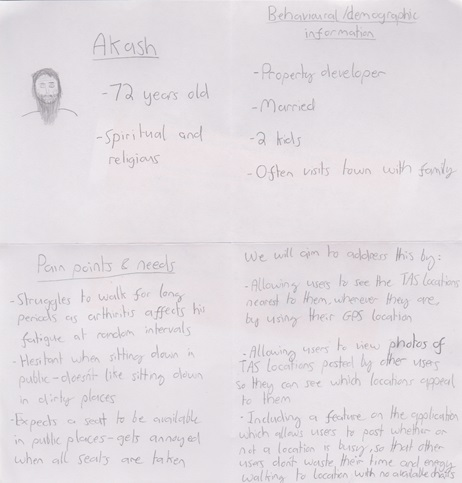 Akash
-72 years old
-Spiritual and
religious
Behavioural/demographic
information
-Property developer
-Married
-2 kids
-Often visits town with family
Pain points & needs
-Struggles to walk for long
periods as arthritis affects his
fatigue at random intervals
-Hesitant when sitting down in
public-doesn't like sitting down
in dirty places
-Expects a seat to be available
in public places-gets annoyed
when all seats are taken
We will aim to address this by:
-Allowing users to see the TAS locations
nearest to them, wherever they are,
by using their GPS location
-Allowing users to view photos of
TAS locations posted by other users
so they can see which locations appeal
to them
-Including a feature on the application
which allows users to post whether or
not a location is busy, so that other
users dont waste their time and energy
walking to location with no available